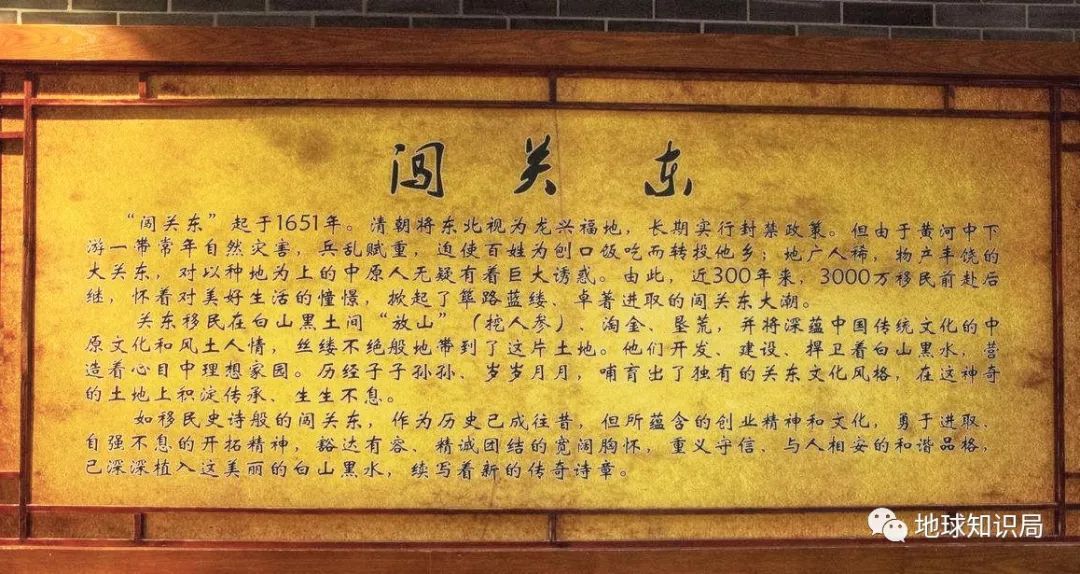 闯关东
“闯关东”起于1651年。清朝将东北视为龙兴福地，长期实行封禁政策。但由于黄河中下
游一带常年自然灾害，兵乱赋重，迫使百姓为刨口饭吃而转投他乡；地广人稀，物产丰饶的
大关东，对以种地为上的中原人无疑有着巨大诱惑。由此，近300年来，3000万移民前赴后
继，怀着对美好生活的憧憬，掀起了筚路蓝缕、卓著进取的闯关东大潮。
关东移民在白山黑土间“放山”（挖人参）、淘金、垦荒，并将深蕴中国传统文化的中
原文化和风土人情，丝缕不绝般地带到了这片土地。他们开发、建设、捍卫着白山黑水，营
造着心目中理想家园。历经子子孙孙、岁岁月月，哺育出了独有的关东文化风格，在这神奇
的土地上积淀传承、生生不息。
如移民史诗般的闯关东，作为历史已成往昔，但所蕴含的创业精神和文化，勇于进取、
自强不息的开拓精神，豁达有容、精诚团结的宽阔胸怀，重义守信、与人相安的和谐品格，
已深深植入这美丽的白山黑水，续写着新的传奇诗章。
地球知识局